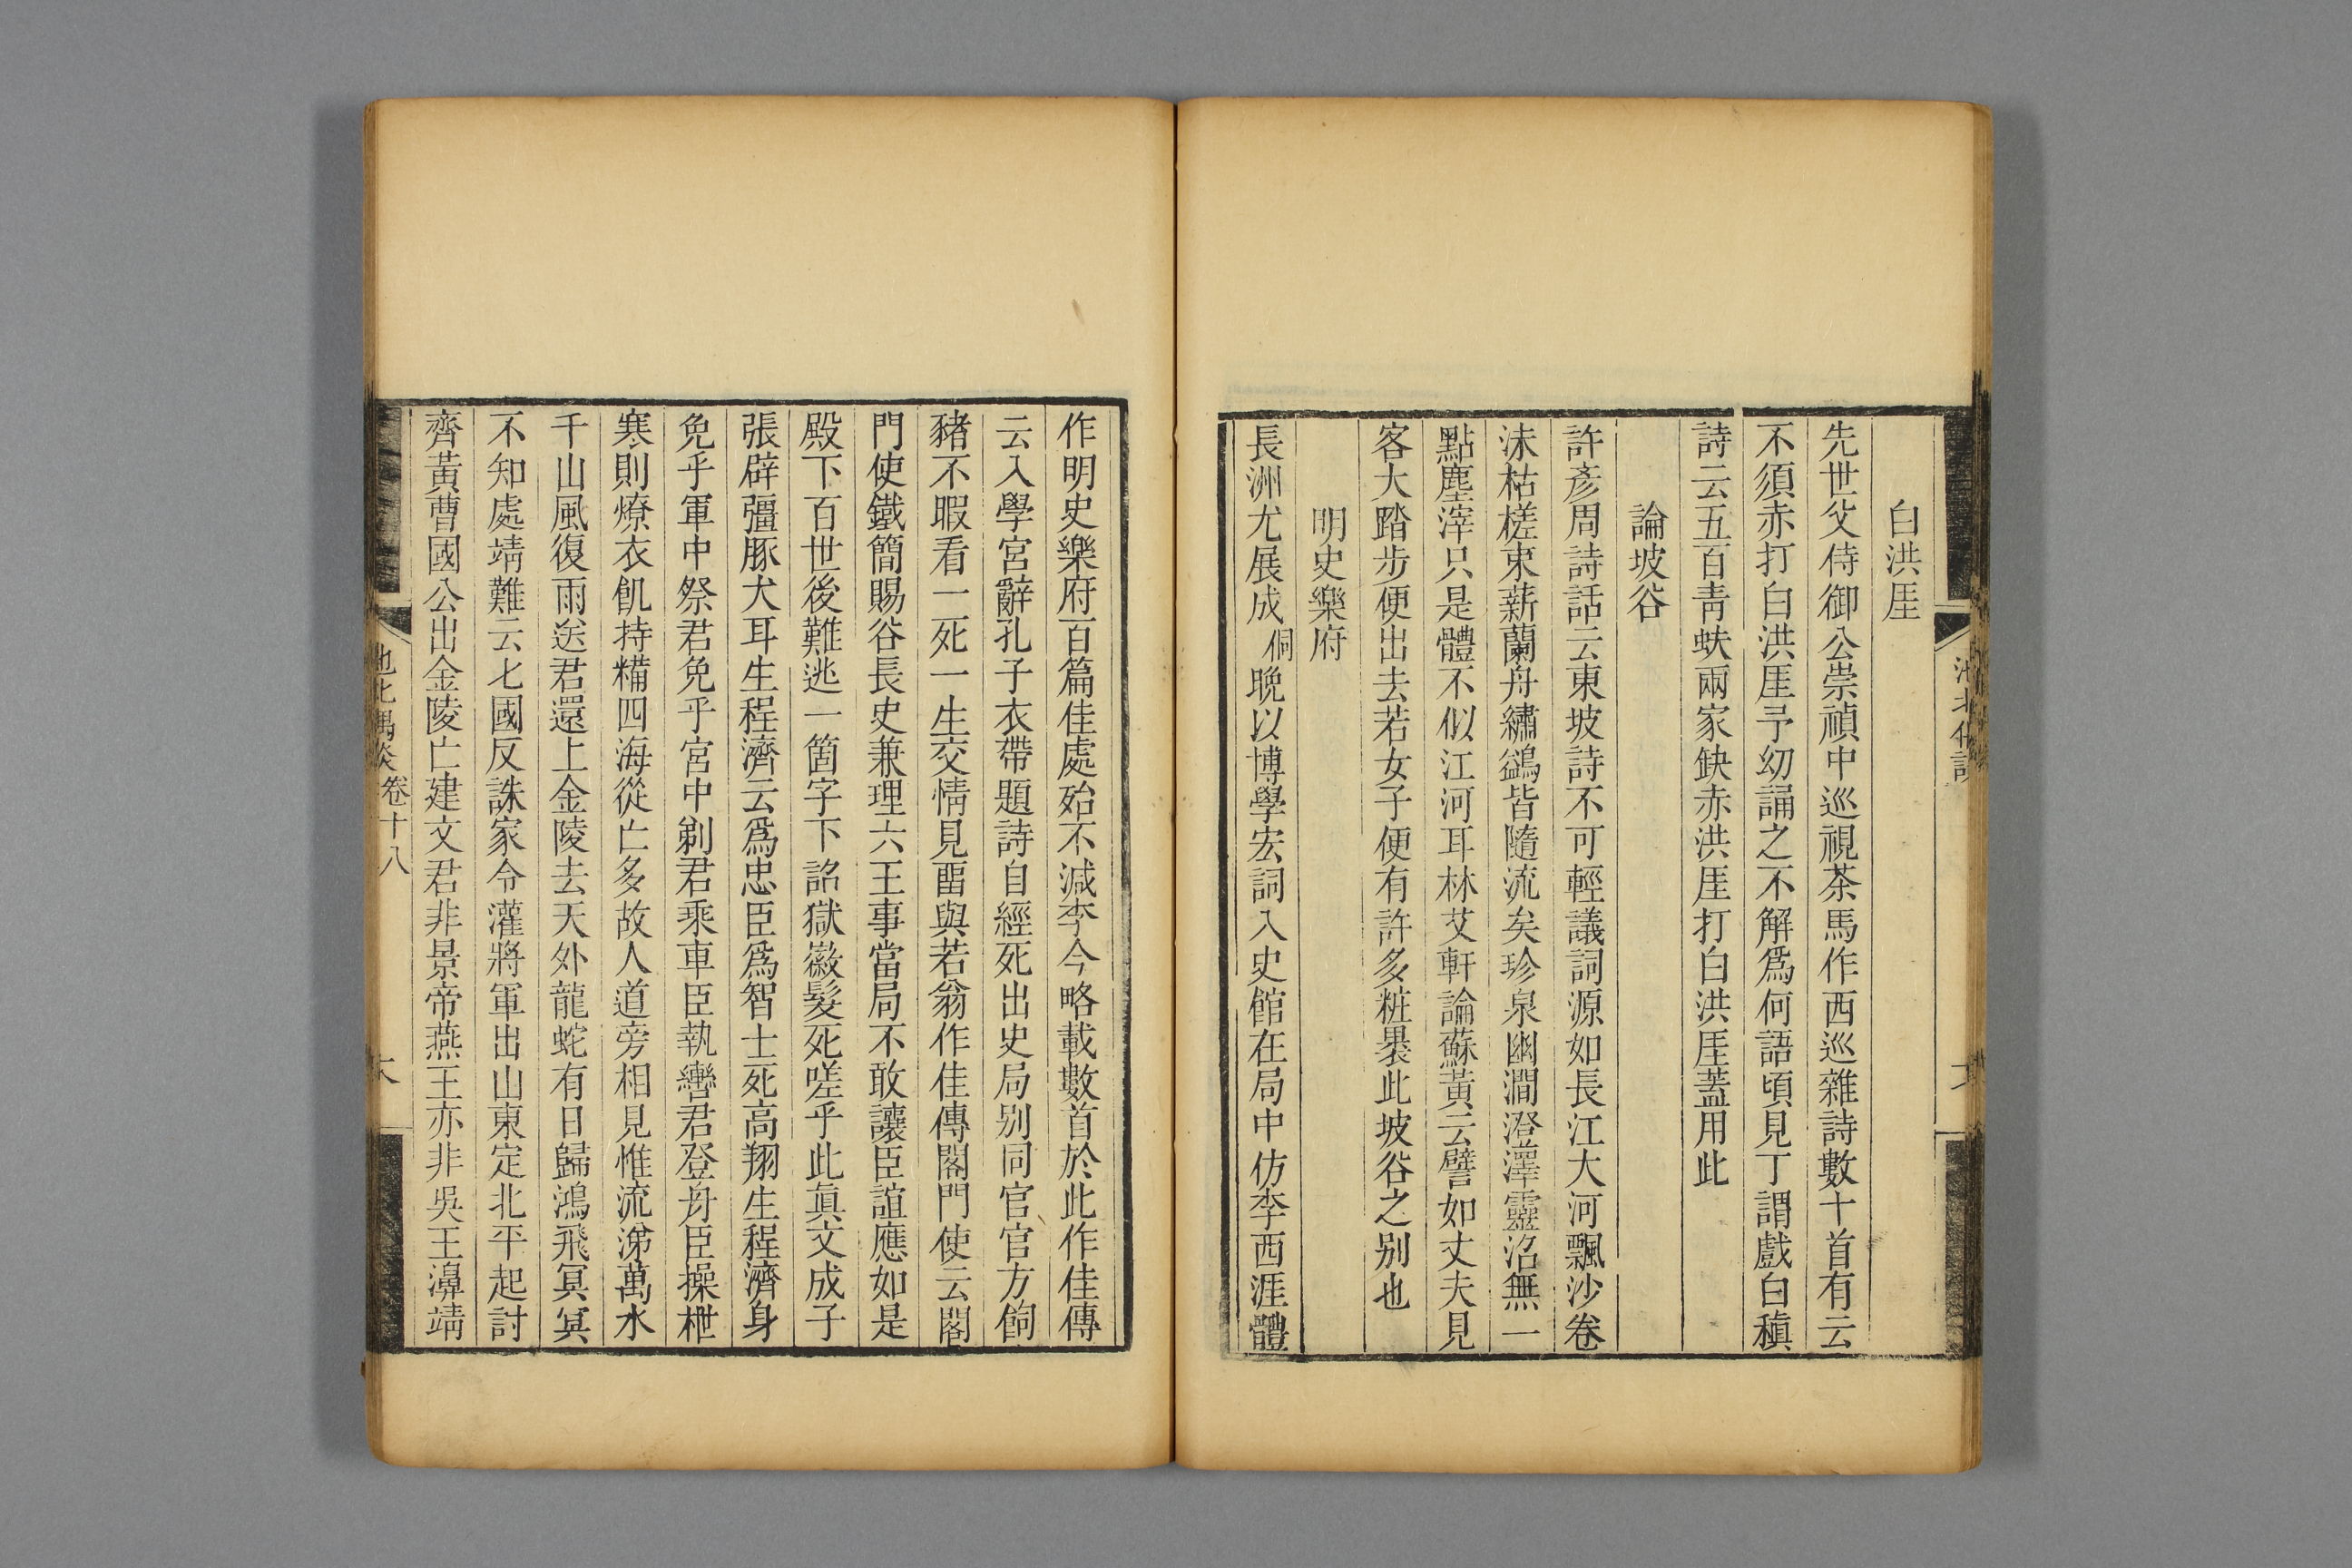 白洪厓
先世父侍御公崇禎中巡視茶馬作西巡雜詩數十首有云
不須赤打白洪厓予幼誦之不解爲何語頃見丁謂戲白稹
詩云五百靑蚨兩家缺赤洪厓打白洪厓蓋用此
論坡谷
許彥周詩話云東坡詩不可輕議詞源如長江大河飄沙卷
沫枯槎束薪蘭舟繡鷁皆隨流矣珍泉幽澗澄澤靈沼無一
點塵滓只是體不似江河耳林艾軒論蘇黃云譬如丈夫見
客大踏步便出去若女子便有許多粧裹此坡谷之别也
明史樂府
長洲尤展成侗晚以博學宏詞入史館在局中仿李西涯體
作明史樂府百篇佳處殆不減李今略載數首於此作佳傳
云入學宮辭孔子衣帶題詩自經死出史局别同官官方飼
豬不暇看一死一生交情見畱與若翁作佳傳閣門使云閣
門使鐵簡賜谷長史兼理六王事當局不敢讓臣誼應如是
殿下百世後難逃一箇字下詔獄嶶髮死嗟乎此眞文成子
張辟彊豚犬耳生程濟云爲忠臣爲智士死高翔生程濟身
免乎軍中祭君免乎宮中剃君乘車臣執轡君登舟臣操枻
寒則燎衣飢持糒四海從亡多故人道旁相見惟流涕萬水
千山風復雨送君還上金陵去天外龍蛇有日歸鴻飛冥冥
不知處靖難云七國反誅家令灌將軍出山東定北平起討
齊黃曹國公出金陵亡建文君非景帝燕王亦非吳王濞靖
池北偶談 卷十八